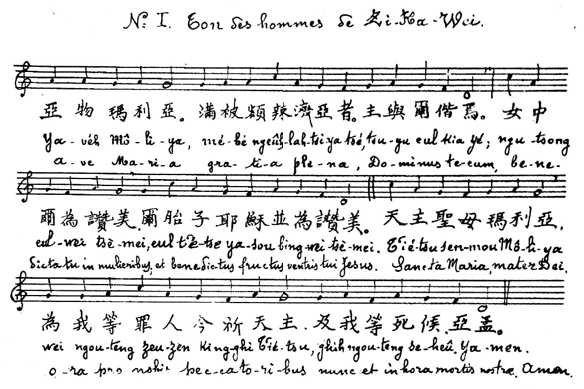 Nº I. Ton des hommes de Zi-Ka-Wei.
亞物瑪利亞。滿被額辣濟亞者。主與爾偕焉。女中
Ya-véh Mô-li-ya, mé-bé ngeûh-lah-tsi-ya tsé, tsu-yu eul kia yé; ngu-tsong
a-ve Ma-ri-a gra-ti-a ple-na, Do-minus te-cum, be-ne-
爾為讚美。爾胎子耶穌並為讚美。天主聖母瑪利亞,
eul-wei tsè-mei, eul t'è-tse ya-sou bing wei tsè-mei. T'ié-tsu sen-mou Mô-li-ya
dicta tu in mulieribus, et benedictus fructus ventris tui Jesus. Sancta Maria, mater Dei.
為我等罪人今祈天主。及我等死候。亞孟。
wei ngou-teng zeu-zen king-ghi T'ié-tsu, ghih ngou-teng se-heû. Ya-men.
o-ra pro nobis pec-ca-to-ri-bus nunc et in hora mortis nostræ. Amen.